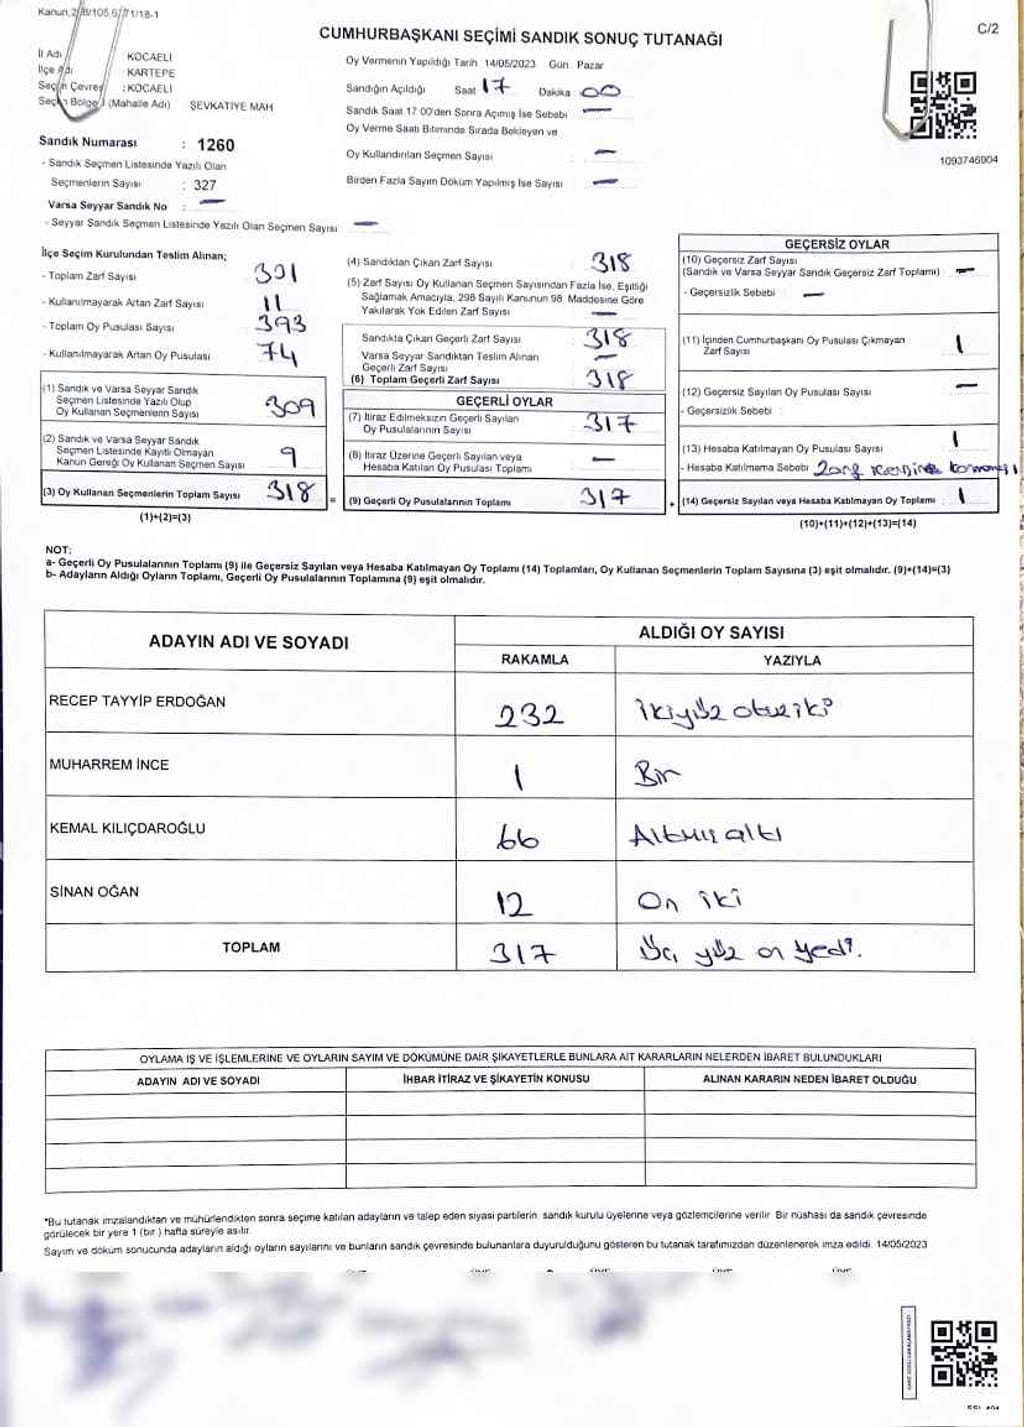 CUMHURBAŞKANI SEÇİMİ SANDIK SONUÇ TUTANAĞI
C/2
İl Adı : KOCAELİ
İlçe Adı : KARTEPE
Seçim Çevresi : KOCAELİ
Seçim Bölgesi (Mahalle Adı) ŞEVKATİYE MAH
Sandık Numarası : 1260
- Sandık Seçmen Listesinde Yazılı Olan
Seçmenlerin Sayısı : 327
Varsa Seyyar Sandık No : —
- Seyyar Sandık Seçmen Listesinde Yazılı Olan Seçmen Sayısı —
Oy Vermenin Yapıldığı Tarih 14/05/2023 Gün Pazar
Sandığın Açıldığı Saat 17 Dakika 00
Sandık Saat 17 00'den Sonra Açımış İse Sebebi —
Oy Verme Saati Bitiminde Sırada Bekleyen ve
Oy Kullandırılan Seçmen Sayısı —
Birden Fazla Sayım Döküm Yapılmış İse Sayısı —
1093746904
İlçe Seçim Kurulundan Teslim Alınan;
- Toplam Zarf Sayısı
- Kullanılmayarak Artan Zarf Sayısı 11
- Toplam Oy Pusulası Sayısı 393
- Kullanılmayarak Artan Oy Pusulası 74
(1) Sandık ve Varsa Seyyar Sandık
Seçmen Listesinde Yazılı Olup
Oy Kullanan Seçmenlerin Sayısı 309
(2) Sandık ve Varsa Seyyar Sandık
Seçmen Listesinde Kayıtlı Olmayan
Kanun Gereği Oy Kullanan Seçmen Sayısı 9
(3) Oy Kullanan Seçmenlerin Toplam Sayısı 318 =
(1)+(2)=(3)
(4) Sandıktan Çıkan Zarf Sayısı 318
(5) Zarf Sayısı Oy Kullanan Seçmen Sayısından Fazla İse, Eşitliği
Sağlamak Amacıyla, 298 Sayılı Kanunun 98. Maddesine Göre
Yakılarak Yok Edilen Zarf Sayısı —
Sandıkta Çıkan Geçerli Zarf Sayısı 318
Varsa Seyyar Sandıktan Teslim Alınan
Geçerli Zarf Sayısı —
(6) Toplam Geçerli Zarf Sayısı 318
GEÇERLİ OYLAR
(7) İtiraz Edilmeksizin Geçerli Sayılan
Oy Pusulalarının Sayısı 317
(8) İtiraz Üzerine Geçerli Sayılan veya
Hesaba Katılan Oy Pusulası Toplamı —
(9) Geçerli Oy Pusulalarının Toplamı 317 +
GEÇERSİZ OYLAR
(10) Geçersiz Zarf Sayısı
(Sandık ve Varsa Seyyar Sandık Geçersiz Zarf Toplamı) —
- Geçersizlik Sebebi : —
(11) İçinden Cumhurbaşkanı Oy Pusulası Çıkmayan
Zarf Sayısı 1
(12) Geçersiz Sayılan Oy Pusulası Sayısı —
- Geçersizlik Sebebi :
(13) Hesaba Katılmayan Oy Pusulası Sayısı 1
- Hesaba Katılmama Sebebi
(14) Geçersiz Sayılan veya Hesaba Katılmayan Oy Toplamı 1
(10)+(11)+(12)+(13)=(14)
NOT:
a- Geçerli Oy Pusulalarının Toplamı (9) ile Geçersiz Sayılan veya Hesaba Katılmayan Oy Toplamı (14) Toplamları, Oy Kullanan Seçmenlerin Toplam Sayısına (3) eşit olmalıdır. (9)+(14)=(3)
b- Adayların Aldığı Oyların Toplamı, Geçerli Oy Pusulalarının Toplamına (9) eşit olmalıdır.
ADAYIN ADI VE SOYADI
ALDIĞI OY SAYISI
RAKAMLA YAZIYLA
RECEP TAYYİP ERDOĞAN 232 ikiyüz otuz iki
MUHARREM İNCE 1 Bir
KEMAL KILIÇDAROĞLU 66 Altmış altı
SİNAN OĞAN 12 On iki
TOPLAM 317 Üç yüz on yedi.
OYLAMA İŞ VE İŞLEMLERİNE VE OYLARIN SAYIM VE DÖKÜMÜNE DAİR ŞİKAYETLERLE BUNLARA AİT KARARLARIN NELERDEN İBARET BULUNDUKLARI
ADAYIN ADI VE SOYADI İHBAR İTİRAZ VE ŞİKAYETİN KONUSU ALINAN KARARIN NEDEN İBARET OLDUĞU
*Bu tutanak imzalandıktan ve mühürlendikten sonra seçime katılan adayların ve talep eden siyasi partilerin sandık kurulu üyelerine veya gözlemcilerine verilir. Bir nüshası da sandık çevresinde
görülecek bir yere 1 (bir) hafta süreyle asılır.
Sayım ve döküm sonucunda adayların aldığı oyların sayılarını ve bunların sandık çevresinde bulunanlara duyurulduğunu gösteren bu tutanak tarafımızdan düzenlenerek imza edildi. 14/05/2023